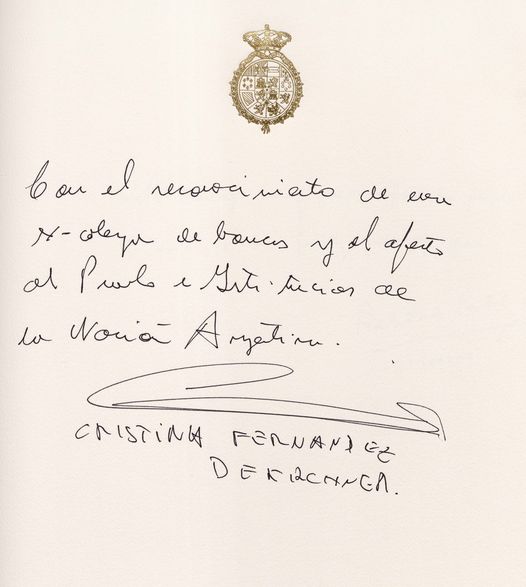 Con el reconocimiento de una
ex-colega de bancas y el afecto
del Pueblo e Instituciones de
la Nación Argentina.
CRISTINA FERNANDEZ
DE KIRCHNER.